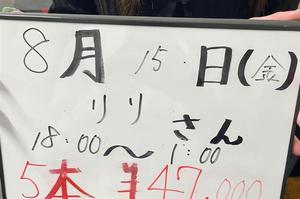 8月15.日(金)
リリさん
18:00〜1:00
5本 ¥47,000